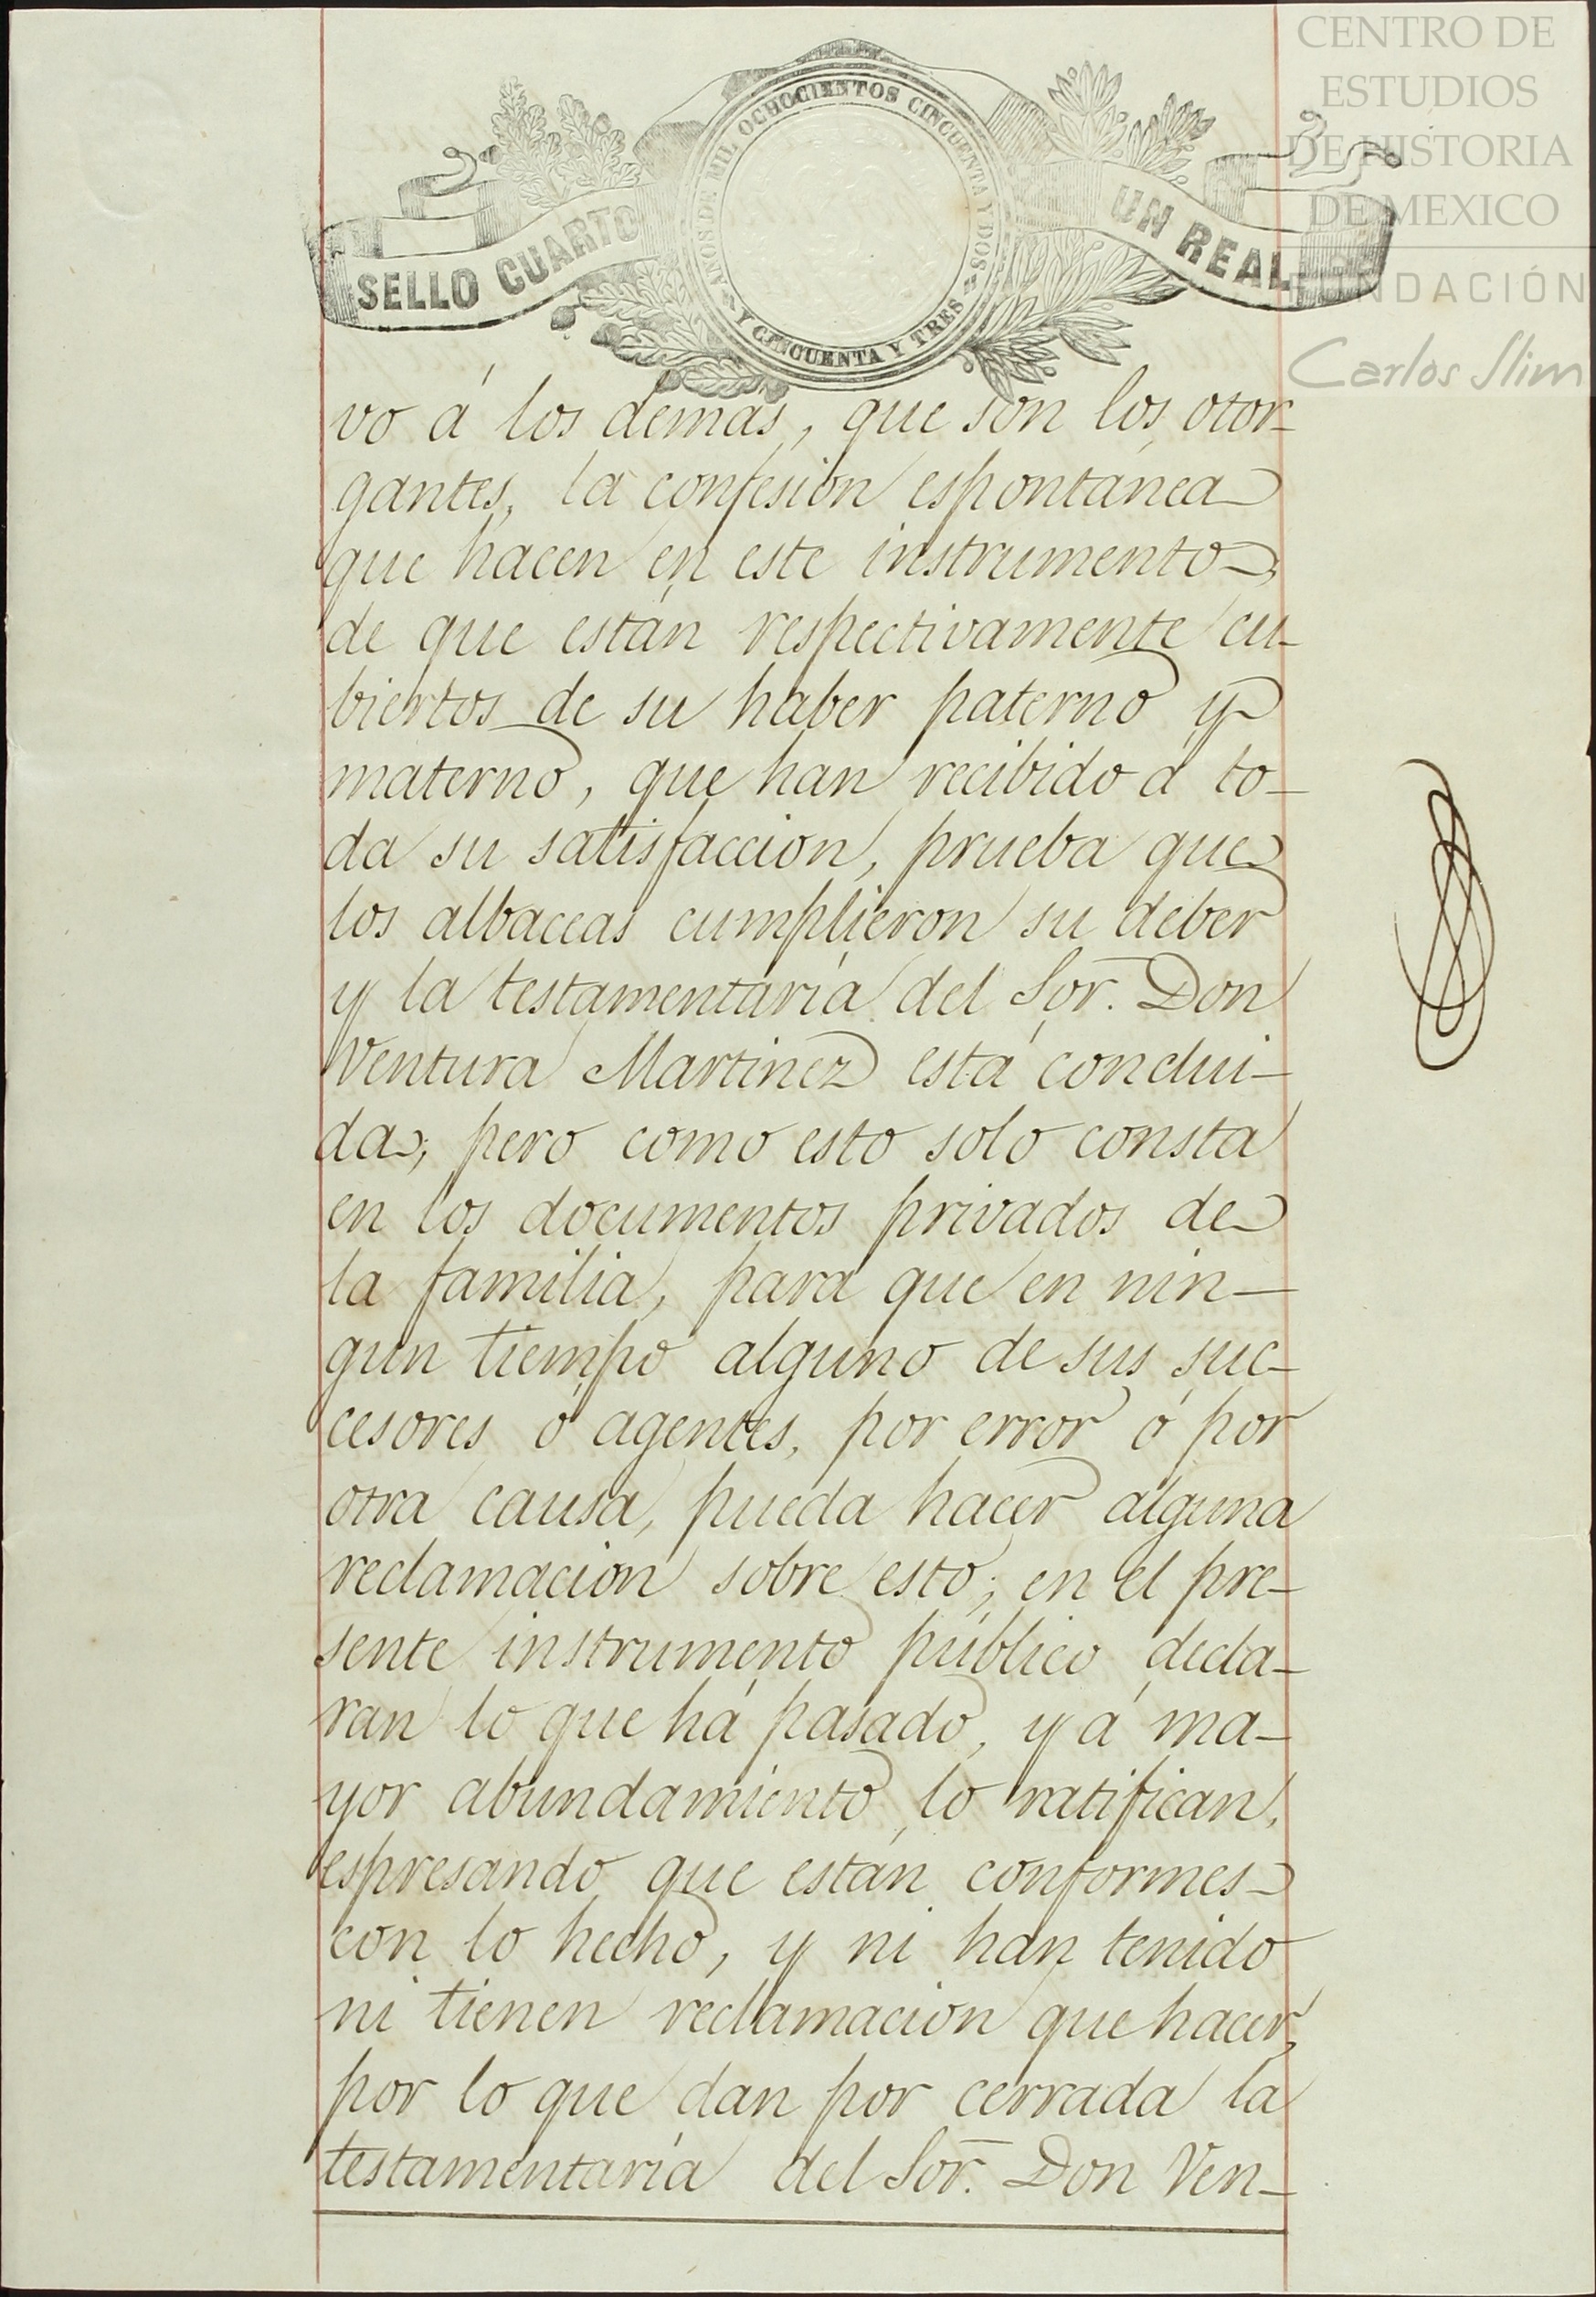 CENTRO DE
ESTUDIOS
DE HISTORIA
DE MEXICO
FUNDACIÓN
Carlos Slim
SELLO CUARTO
AÑOS DE MIL OCHOCIENTOS CINCUENTA Y DOS
Y CINCUENTA Y TRES
UN REAL
vo á los demás, que son los otor-
gantes, la confesión espontánea
que hacen en este instrumento,
de que están respectivamente cu-
biertos de su haber paterno y
materno, que han recibido á to-
da su satisfaccion, prueba que
los albaceas cumplieron su deber
y la testamentaría del Sor. Don
Ventura Martinez está conclui-
da; pero como esto solo consta
en los documentos privados de
la familia, para que en nin-
gun tiempo alguno de sus suc-
cesores ó agentes, por error ó por
otra causa, pueda hacer alguna
reclamacion sobre esto; en el pre-
sente instrumento público decla-
ran lo que há pasado, y á ma-
yor abundamiento lo ratifican,
espresando que están conformes
con lo hecho, y ni han tenido
ni tienen reclamacion que hacer,
por lo que dan por cerrada la
testamentaría del Sor. Don Ven-